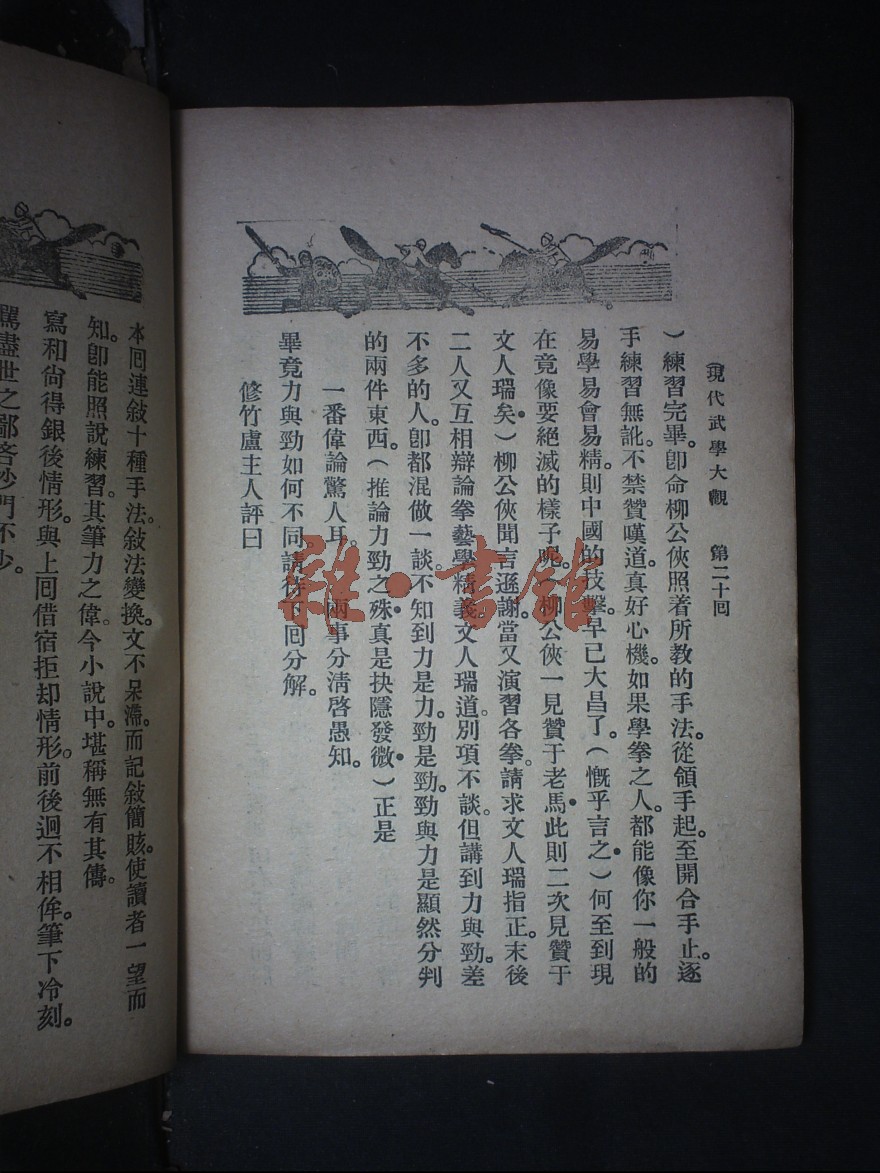 (現代武學大觀　第二十回
)練習完畢。卽命柳公俠照着所教的手法。從領手起。至開合手止。逐
手練習無訛。不禁贊嘆道。真好心機。如果學拳之人。都能像你一般的
易學易會易精。則中國的技擊。早已大昌了。(慨乎言之)何至到現
在竟像要絕滅的樣子呢。(柳公俠一見贊于老馬。此則二次見贊于
文人瑞矣)柳公俠聞言遜謝。當又演習各拳。請求文人瑞指正。末後
二人又互相辯論拳藝學精義。文人瑞道。別項不談。但講到力與勁。差
不多的人。卽都混做一談。不知到力是力。勁是勁。勁與力是顯然分判
的兩件東西(推論力勁之殊真是抉隱發微)正是
一番偉論驚人耳。　兩事分淸啓愚知。
畢竟力與勁如何不同。請待下囘分解。
修竹盧主人評曰
本囘連敍十種手法。敍法變換。文不呆滯。而記敍簡賅。使讀者一望而
知。卽能照說練習。其筆力之偉。今小說中。堪稱無有其儔。
寫和尙得銀後情形。與上囘借宿拒却情形。前後迥不相侔。筆下冷刻。
罵盡世之鄙吝沙門不少。
雜·書館